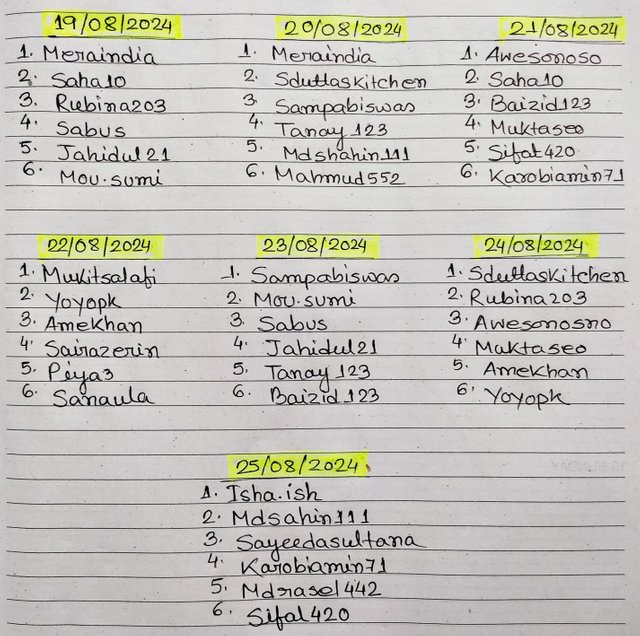 19/08/2024
1. Meraindia
2. Saha10
3. Rubina203
4. Sabus
5. Jahidul21
6. Mou.sumi
20/08/2024
1. Meraindia
2. Sduttaskitchen
3. Sampabiswas
4. Tanay123
5. Mdshahin111
6. Mahmud552
21/08/2024
1. Awesonoso
2. Saha10
3. Baizid123
4. Muktaseo
5. Sifat420
6. Karobiamin71
22/08/2024
1. Mukitsalafi
2. Yoyopk
3. Amekhan
4. Sairazerin
5. Piya3
6. Sanaula
23/08/2024
1. Sampabiswas
2. Mou.sumi
3. Sabus
4. Jahidul21
5. Tanay123
6. Baizid123
24/08/2024
1. Sduttaskitchen
2. Rubina203
3. Awesonosno
4. Muktaseo
5. Amekhan
6. Yoyopk
25/08/2024
1. Isha.ish
2. Mdsahin111
3. Sayeedasultana
4. Karobiamin71
5. Mdrasel442
6. Sifat420